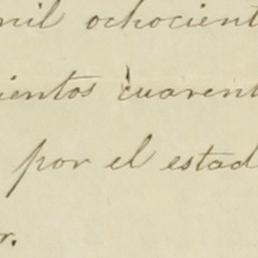 mil ochocient
ientos cuarent
por el estad
r.